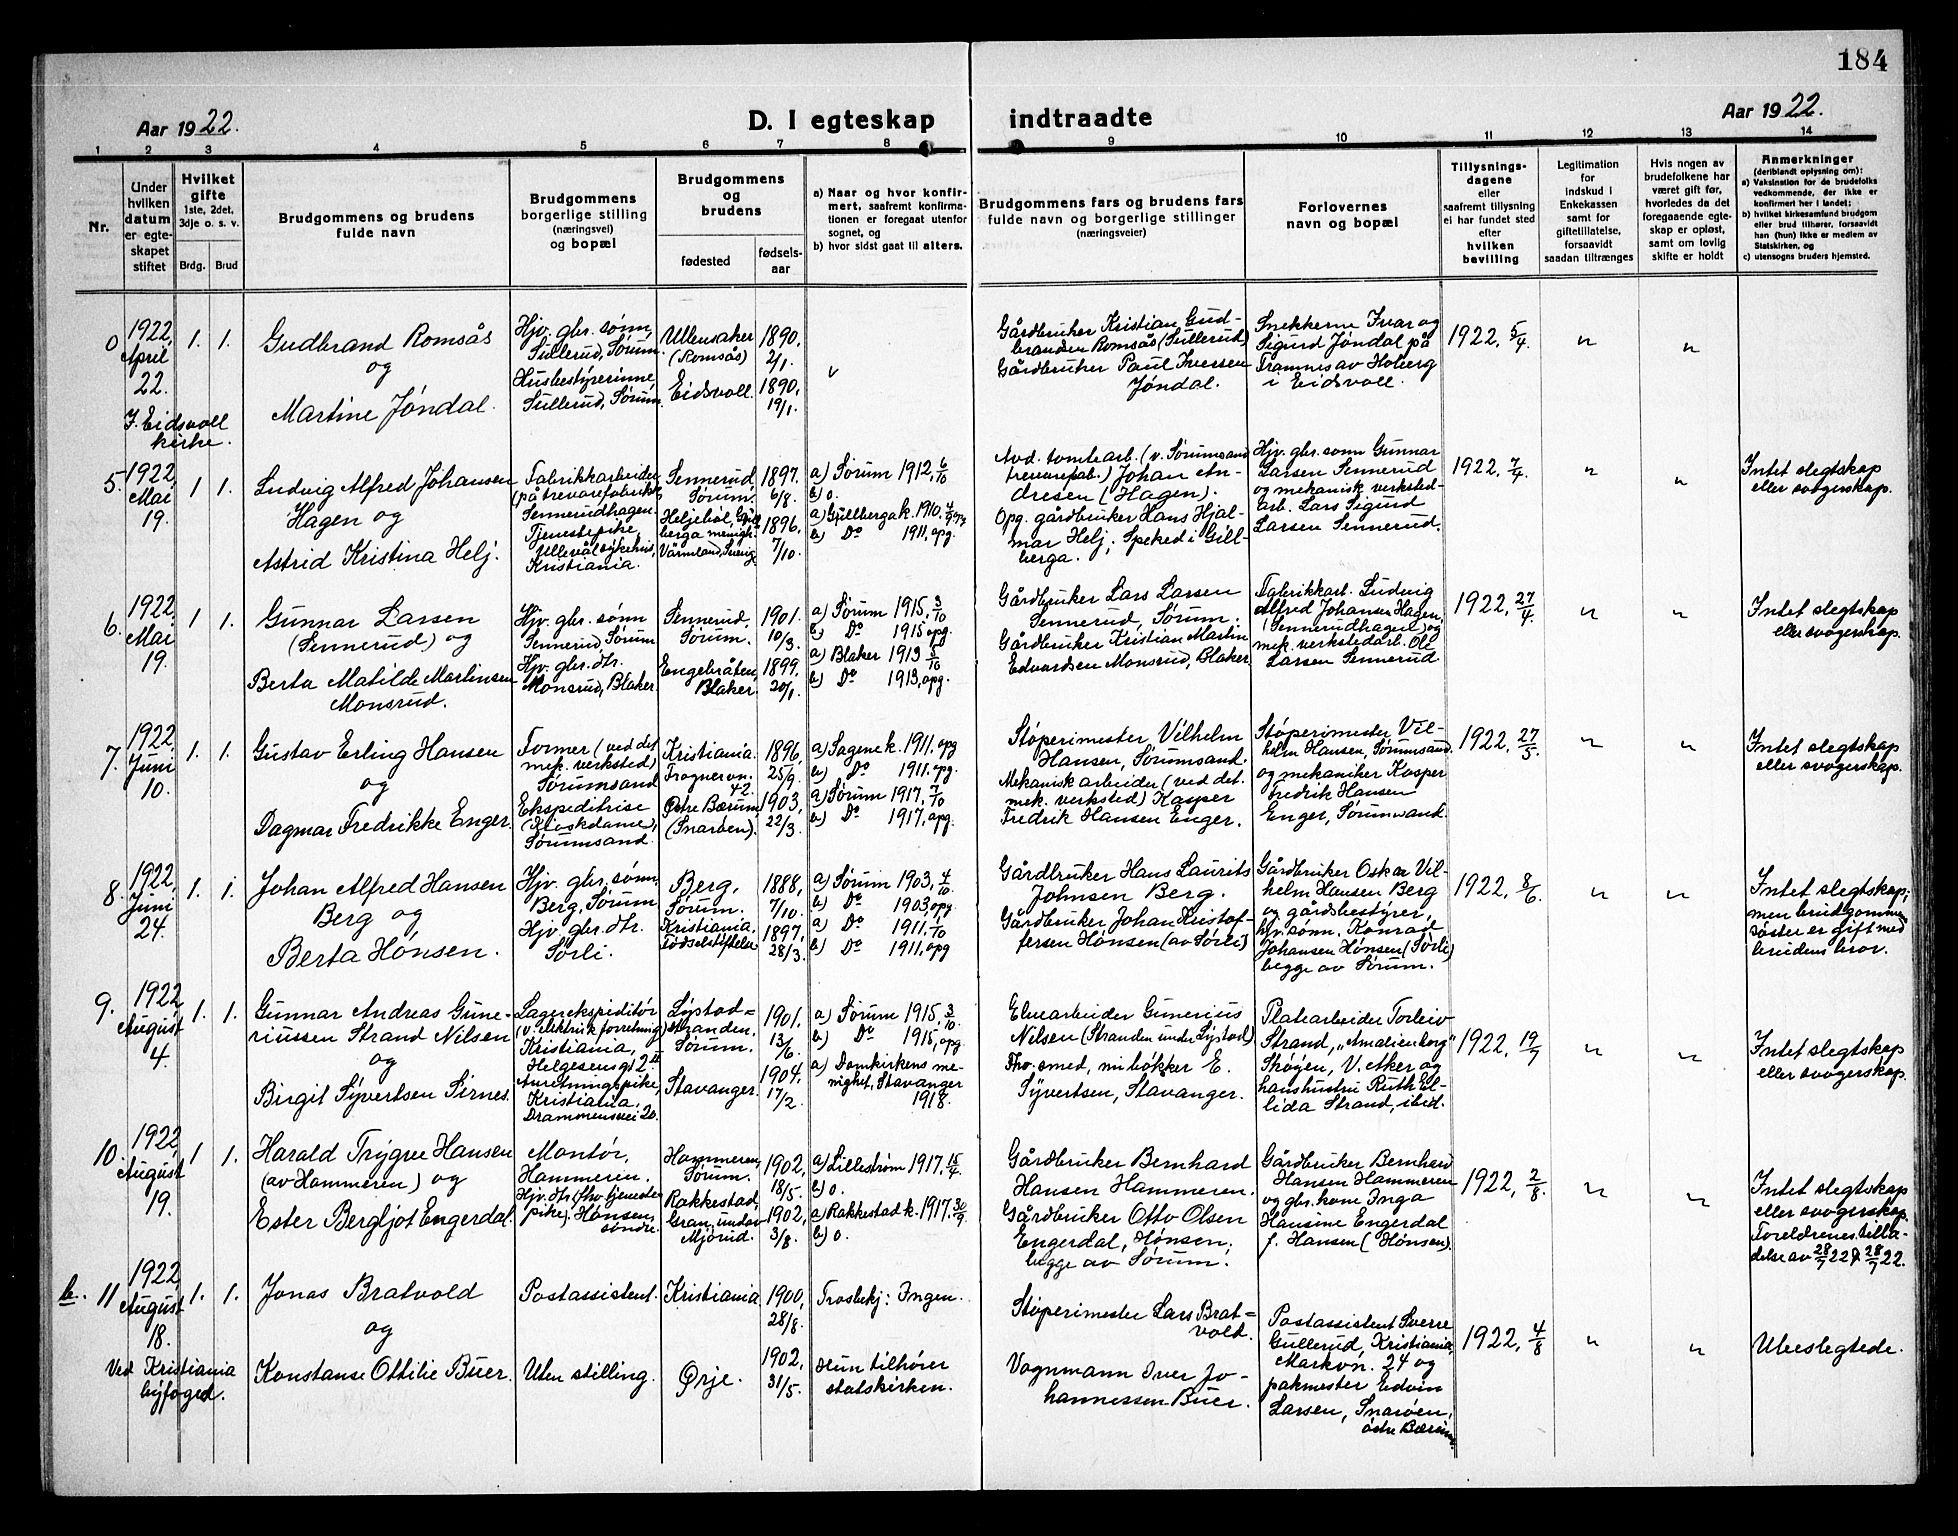 184
Aar 1922.
D. I egteskap indtraadte
Aar 1922.
1 2 3 4 5 6 7 8 9 10 11 12 13 14
Nr.
Under
hvilken
datum
er egte-
skapet
stiftet
Hvilket
gifte
1ste, 2det,
3dje o. s. v.
Brdg. Brud
Brudgommens og brudens
fulde navn
Brudgommens
borgerlige stilling
(næringsvei)
og bopæl
Brudgommens
og
brudens
fødested
fødsels-
aar
a) Naar og hvor konfir-
mert, saafremt konfirma-
tionen er foregaat utenfor
sognet, og
b) hvor sidst gaat til alters.
Brudgommens fars og brudens fars
fulde navn og borgerlige stillinger
(næringsveier)
Forlovernes
navn og bopæl
Tillysnings-
dagene
eller
saafremt tillysning
ei har fundet sted
efter
hvilken
bevilling
Legitimation
for
indskud i
Enkekassen
samt for
giftetillatelse,
forsaavidt
saadan tiltrænges
Hvis nogen av
brudefolkene har
været gift før,
hvorledes da det
foregaaende egte-
skap er opløst,
samt om lovlig
skifte er holdt
Anmerkninger
(deriblandt oplysning om):
a) Vaksination for de brudefolks
vedkommende, der ikke er
konfirmert her i landet;
b) hvilket kirkesamfund brudgom
eller brud tilhører, forsaavidt
han (hun) ikke er medlem av
Statskirken, og
c) utensogns bruders hjemsted.
0 1922, April 22. 1. 1.
I Eidsvoll
kirke.
Gudbrand Romsås
og
Martine Jøndal.
Hjv. gbr. sønn,
Sullerud, Sørum.
Husbestyrerinne,
Sullerud, Sørum.
Ullensaker
(Romsås)
Eidsvoll.
1890,
2/1.
1890,
19/1.
Gårdbruker Kristian Gud-
brandsen Romsås (Sullerud)
Gårdbruker Paul Iversen
Jøndal.
Snekkerne Ivar og
Sigurd Jøndal på
Tramnes av Hoberg
i Eidsvoll.
1922, 5/4.
"
"
5. 1922, Mai 19. 1 1.
Ludvig Alfred Johansen
Hagen og
Astrid Kristina Helj.
Fabrikkarbeider
(på trevarefabrikk)
Sennerudhagen.
Tjenestepike,
Ullevål sykehus,
Kristiania.
Sennerud,
Sørum.
Heljebøl, Gill-
berga menigh.
Värmland, Sverig
1897.
6/8.
1896,
7/10.
a) Sørum 1912, 6/10
b) o.
a) Gillberga k. 1910. opg
b) Do 1911, opg.
Avd. tomtearb. (v. Sørumsand
trevarefab.) Johan An-
dresen (Hagen).
Opg. gårdbruker Hans Hjal-
mar Helj, Speked i Gill-
berga.
Hjv. gbr. sønn Gunnar
Larsen Sennerud
og mekanisk verksted-
arb. Lars Sigurd
Larsen Sennerud.
1922, 7/4.
"
"
Intet slegtskap
eller svogerskap.
6. 1922, Mai 19. 1 1.
Gunnar Larsen
(Sennerud) og
Berta Matilde Martinsen
Monsrud.
Hjv. gbr. sønn
Sennerud, Sørum
Hjv. gbr. dtr.
Monsrud, Blaker.
Sennerud,
Sørum.
Engebråten,
Blaker.
1901.
10/3.
1899.
20/1.
a) Sørum 1915, 3/10
b) Do 1915 opg.
a) Blaker 1913 5/10
b) Do 1913, opg.
Gårdbruker Lars Larsen
Sennerud, Sørum.
Gårdbruker Kristian Martin
Edvardsen Monsrud, Blaker.
Fabrikkarb. Ludvig
Alfred Johansen Hagen,
(Sennerudhagen) og
mek. verkstedarb. Ole
Larsen Sennerud.
1922, 27/4.
"
"
Intet slegtskap
eller svogerskap.
7. 1922, Juni 10. 1. 1.
Gustav Erling Hansen
og
Dagmar Fredrikke Enger.
Former (ved det
mek. verksted)
Sørumsand
Ekspeditrise
(Kioskdame),
Sørumsand.
Kristiania.
Frognervn.
42.
Østre Bærum
(Snarøen).
1896,
25/9.
1903,
22/3.
a) Sagene k. 1911, opg
b) Do 1911, opg.
a) Sørum 1917, 7/10
b) Do 1917, opg.
Støperimester Vilhelm
Hansen, Sørumsand.
Mekanisk arbeider (ved det
mek. verksted) Kasper
Fredrik Hansen Enger.
Støperimester Vil-
helm Hansen, Sørumsand.
og mekaniker Kasper
Fredrik Hansen
Enger, Sørumsand.
1922, 27/5.
"
"
Intet slegtskap
eller svogerskap.
8. 1922, Juni 24. 1. 1.
Johan Alfred Hansen
Berg og
Berta Hønsen.
Hjv. gbr. sønn,
Berg, Sørum
Hjv. gbr. dtr.
Sørli.
Berg,
Sørum.
Kristiania
fødselstiftelse
1888,
7/10.
1897,
28/3.
a) Sørum 1903, 4/10
b) Do 1903 opg.
a) Do 1911, 1/10
b) Do 1911, opg
Gårdbruker Hans Laurits
Johnsen Berg.
Gårdbruker Johan Kristof-
fersen Hønsen (av Sørli)
Gårdbruker Oskar Vil-
helm Hansen Berg
og gårdsbestyrer,
hjv. sønn. Konrad
Johansen Hønsen (Sørli)
begge av Sørum.
1922, 8/6.
"
"
Intet slegtskap;
men brudgommens
søster er gift med
brudens bror.
9. 1922, August 4. 1. 1.
Gunnar Andreas Gune-
riussen Strand Nilsen
og
Birgit Syvertsen Sirnes.
Lagerekspeditør
(v. elektrik forretning)
Kristiania,
Helgesensgt 2 II
Anretningspike,
Kristiania,
Drammensvei 20.
Lystad-
stranden.
Sørum.
Stavanger.
1901.
13/6.
1904.
17/2.
a) Sørum 1915, 3/10.
b) Do 1915, opg
a) Domkirkens me-
nighet, Stavanger
1918.
Elvearbeider Gunerius
Nilsen (Stranden under Lystad)
Fhv. smed, nu bøkker E.
Syvertsen, Stavanger.
Platearbeider Torleiv
Strand, "Amalienborg"
Skøyen, V. Aker og
hanshustru Ruth El-
lida Strand, ibid.
1922, 19/7
"
"
Intet slegtskap
eller svogerskap.
10. 1922, August 19. 1 1.
Harald Trygve Hansen
(av Hammeren) og
Ester Bergljot Engerdal.
Montør,
Hammeren.
Hjv. dtr. (fhv. tjeneste-
pike). Hønsen,
søndre.
Hammeren,
Sørum.
Rakkestad,
Gran, under
Mjørud.
1902,
18/5.
1902,
3/8.
a) Lillestrøm 1917. 15/4.
b) o.
a) Rakkestad k. 1917. 30/9.
b) o.
Gårdbruker Bernhard
Hansen Hammeren.
Gårdbruker Otto Olsen
Engerdal, Hønsen,
begge av Sørum.
Gårdbruker Bernhard
Hansen Hammeren
og gbr. kone Inga
Hansine Engerdal
f. Hansen (Hønsen).
1922, 2/8.
"
"
Intet slegtskap
eller svogerskap.
Foreldrenes tilla-
delse av 28/7 22 & 28/7 22.
b. 11 1922 August 18. 1. 1.
Ved Kristiania
byfoged.
Jonas Bratvold
og
Konstanse Ottilie Buer.
Postassistent.
Uten stilling.
Kristiania
Ørje.
1900,
28/8.
1902,
31/5.
Trosbekj: Ingen.
Hun tilhører
statskirken.
Støperimester Lars Brat-
vold.
Vognmann Iver Jo-
hannessen Buer.
Postassistent Sverre
Gullerud, Kristiania,
Markvn. 24 og
pakmester Edvin
Larsen, Snarøen,
østre Bærum
1922, 4/8
"
"
Ubeslegtede.